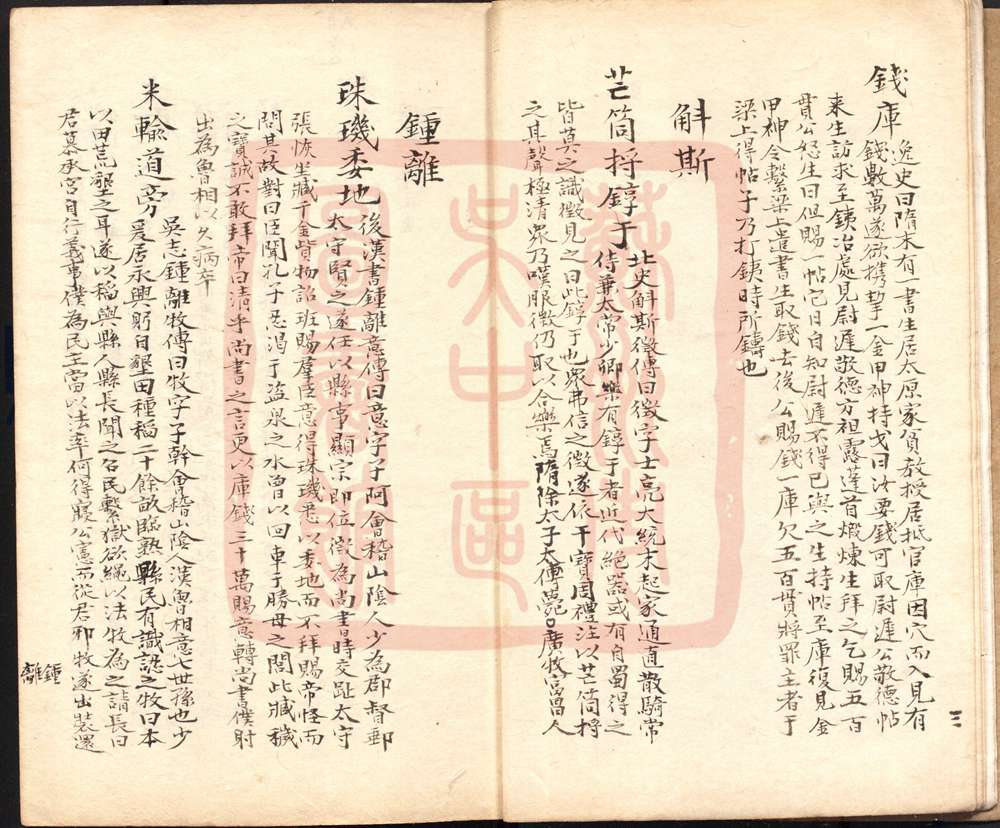 錢庫 逸史曰隋末有一書生居太原家貧教授居抵官庫因穴而入見有
錢數萬遂欲攜挈一金甲神持戈曰汝要錢可取尉遲公敬德帖
來生訪求至鐵冶處見尉遲敬德方袒露蓬首煆煉生拜之乞賜五百
貫公怒生曰但賜一帖它日自知尉遲不得已與之生持帖至庫復見金
甲神令繫梁上遣書生取錢去後公賜錢一庫欠五百貫將罪主者于
梁上得帖子乃打鐵時所鑄也
斛斯
芒筒捋錞于 北史斛斯徵傳曰徵字士亮大統末起家通直散騎常
侍兼太常少卿樂有錞于者近代絕器或有自蜀得之
皆莫之識徵見之曰此錞于也眾弗信之徵遂依干寶周禮注以芒筒捋
之其聲極清眾乃嘆服徵仍取以合樂焉隋除太子太傅薨口廣牧富昌人
三
鍾離
珠璣委地 後漢書鍾離意傳曰意字子阿會稽山陰人少為郡督郵
太守賢之遂任以縣事顯宗即位徵為尚書時交趾太守
張恢坐臧千金貲物詔班賜羣臣意得珠璣悉以委地而不拜賜帝怪而
問其故對曰臣聞孔子忍渴于盜泉之水曾以回車于勝母之閭此臧穢
之寶誠不敢拜帝曰清乎尚書之言更以庫錢三十萬賜意轉尚書僕射
出為魯相以久病卒
米輸道旁 吳志鍾離牧傳曰牧字子幹會稽山陰人漢魯相意七世孫也少
爰居永興躬自墾田種稻二十餘畝臨熟縣民有識認之牧曰本
以田荒墾之耳遂以稻與縣人縣長聞之召民繫獄欲繩以法牧為之請長曰
君慕承宮自行義事僕為民主當以法率何得寢公憲而從君邪牧遂出裝還
鍾離